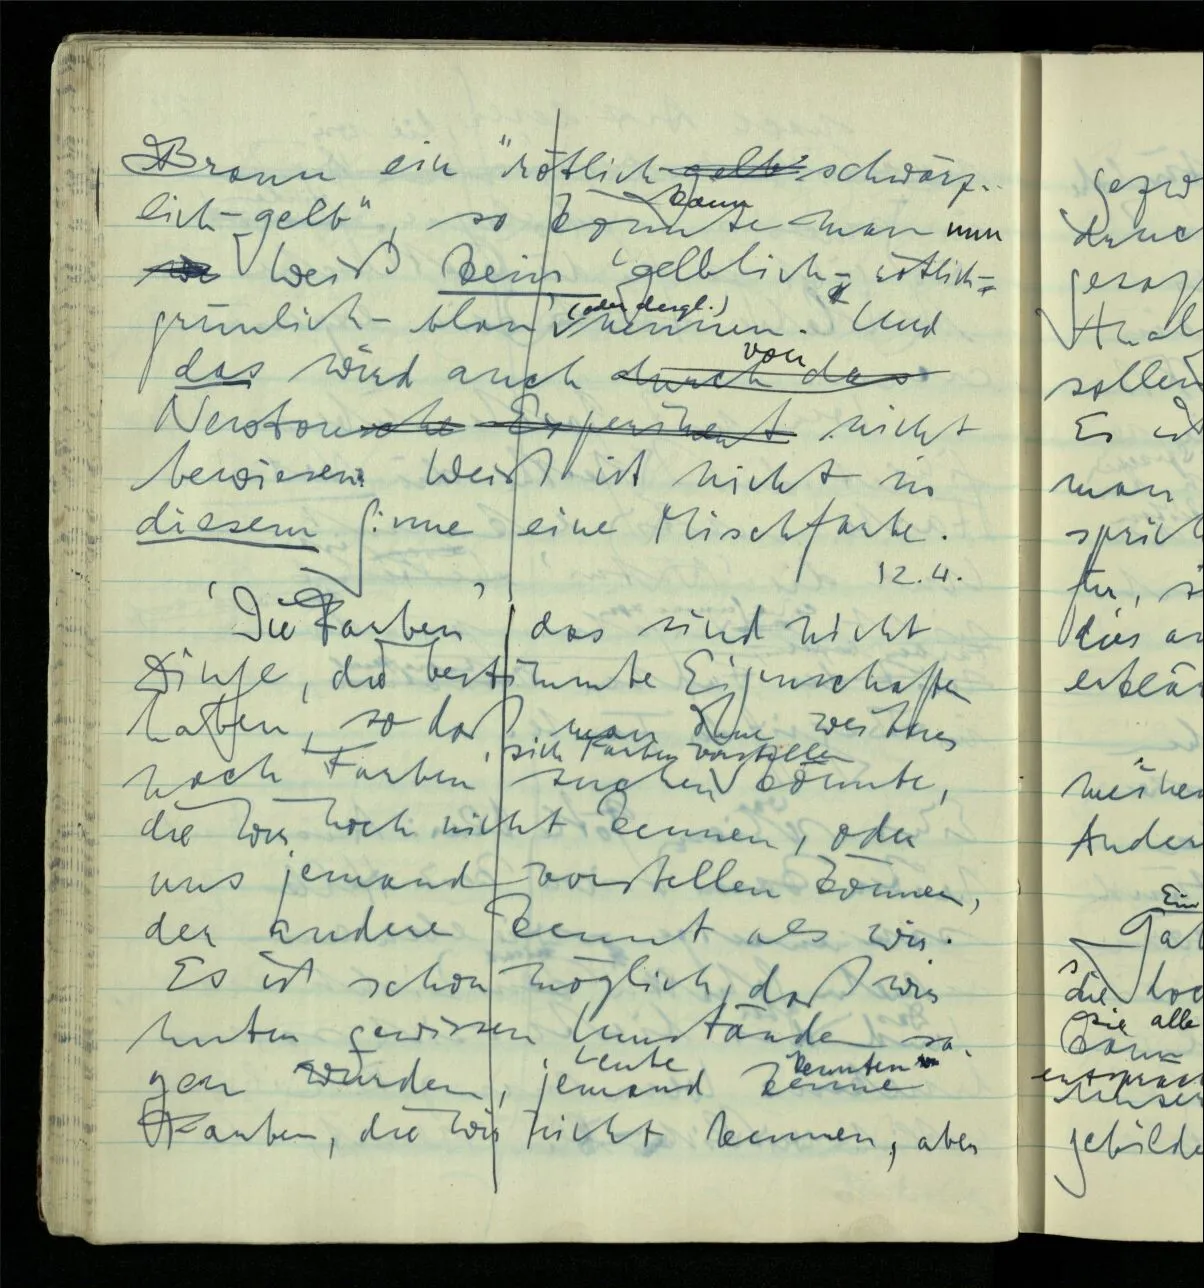 Braun ein "rötlich-gelb schwärz-
lich-gelb", so könnte man nun
kann
Weiß kein 'gelblich- rötlich-
grünlich-blau' nennen. Und
(oder dergl.)
das wird auch durch das
von
Newtonsche Experiment nicht
bewiesen. Weiß ist nicht in
diesem Sinne eine Mischfarbe.
12.4.
'Die Farben' das sind nicht
Dinge, die bestimmte Eigenschaften
haben, so daß man ohne weiteres
nach Farben suchen könnte,
sich Farben vorstellen
die wir noch nicht kennen, oder
uns jemand vorstellen können,
der andere kennt als wir.
Es ist schon möglich, daß wir
unter gewissen Umständen sa-
gen würden, jemand kenne
Leute kennten
Farben, die wir nicht kennen, aber
gezw
druc
gesag
sollen
Es
man
sprich
für, s
dies an
erklär
Ander
die
sie alle
kann
gebilde